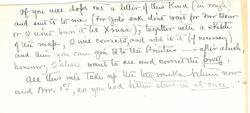 If you will dope out a letter of this kind (in rough)
and send it to me (for God's sake don't wait for Mr
or I won't have it till Xmas), together with a sketch
of the maps, I will correct, and add to it (if necessary)
and then you can give it to the Printers — after which,
however, I shall want to see and correct the proof.
All this will take up the between now
and Nov. 1st, so you had better start in at once.